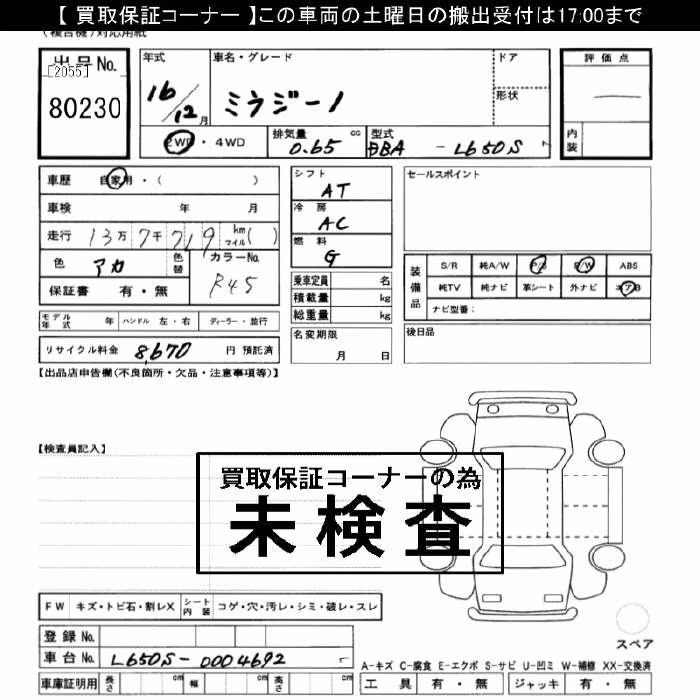 【 買取保証コーナー 】この車両の土曜日の搬出受付は17:00まで
(複合機)対応用紙
出品No.
[2055]
80230
年式
16/12月
車名・グレード
ミラジーノ
ドア
形状
評価点
内装
2WD・4WD
排気量 0.65 cc
型式 DBA - L650S
車歴 自家用・( )
車検 年 月
走行 13万7千719 km マイル( )
色 アカ
色替
カラーNo. R45
保証書 有・無
シフト AT
冷房 AC
燃料 G
乗車定員 名
積載量 kg
総重量 kg
セールスポイント
装備品
S/R 純A/W P/S P/W ABS
純TV 純ナビ 革シート 外ナビ エアB
ナビ型番:
モデル年式 年 ハンドル 左・右 ディーラー・並行
名変期限 月 日
後日品
リサイクル料金 8,670 円 預託済
【出品店申告欄(不良箇所・欠品・注意事項等)】
【検査員記入】
買取保証コーナーの為
未検査
FW キズ・トビ石・割レX シート内装 コゲ・穴・汚レ・シミ・破レ・スレ
登録No.
車台No. L650S-0004692
スペア
A-キズ C-腐食 E-エクボ S-サビ U-凹ミ W-補修 XX-交換済
車庫証明用 長さ cm 幅 cm 高さ cm
工具 有・無 ジャッキ 有・無